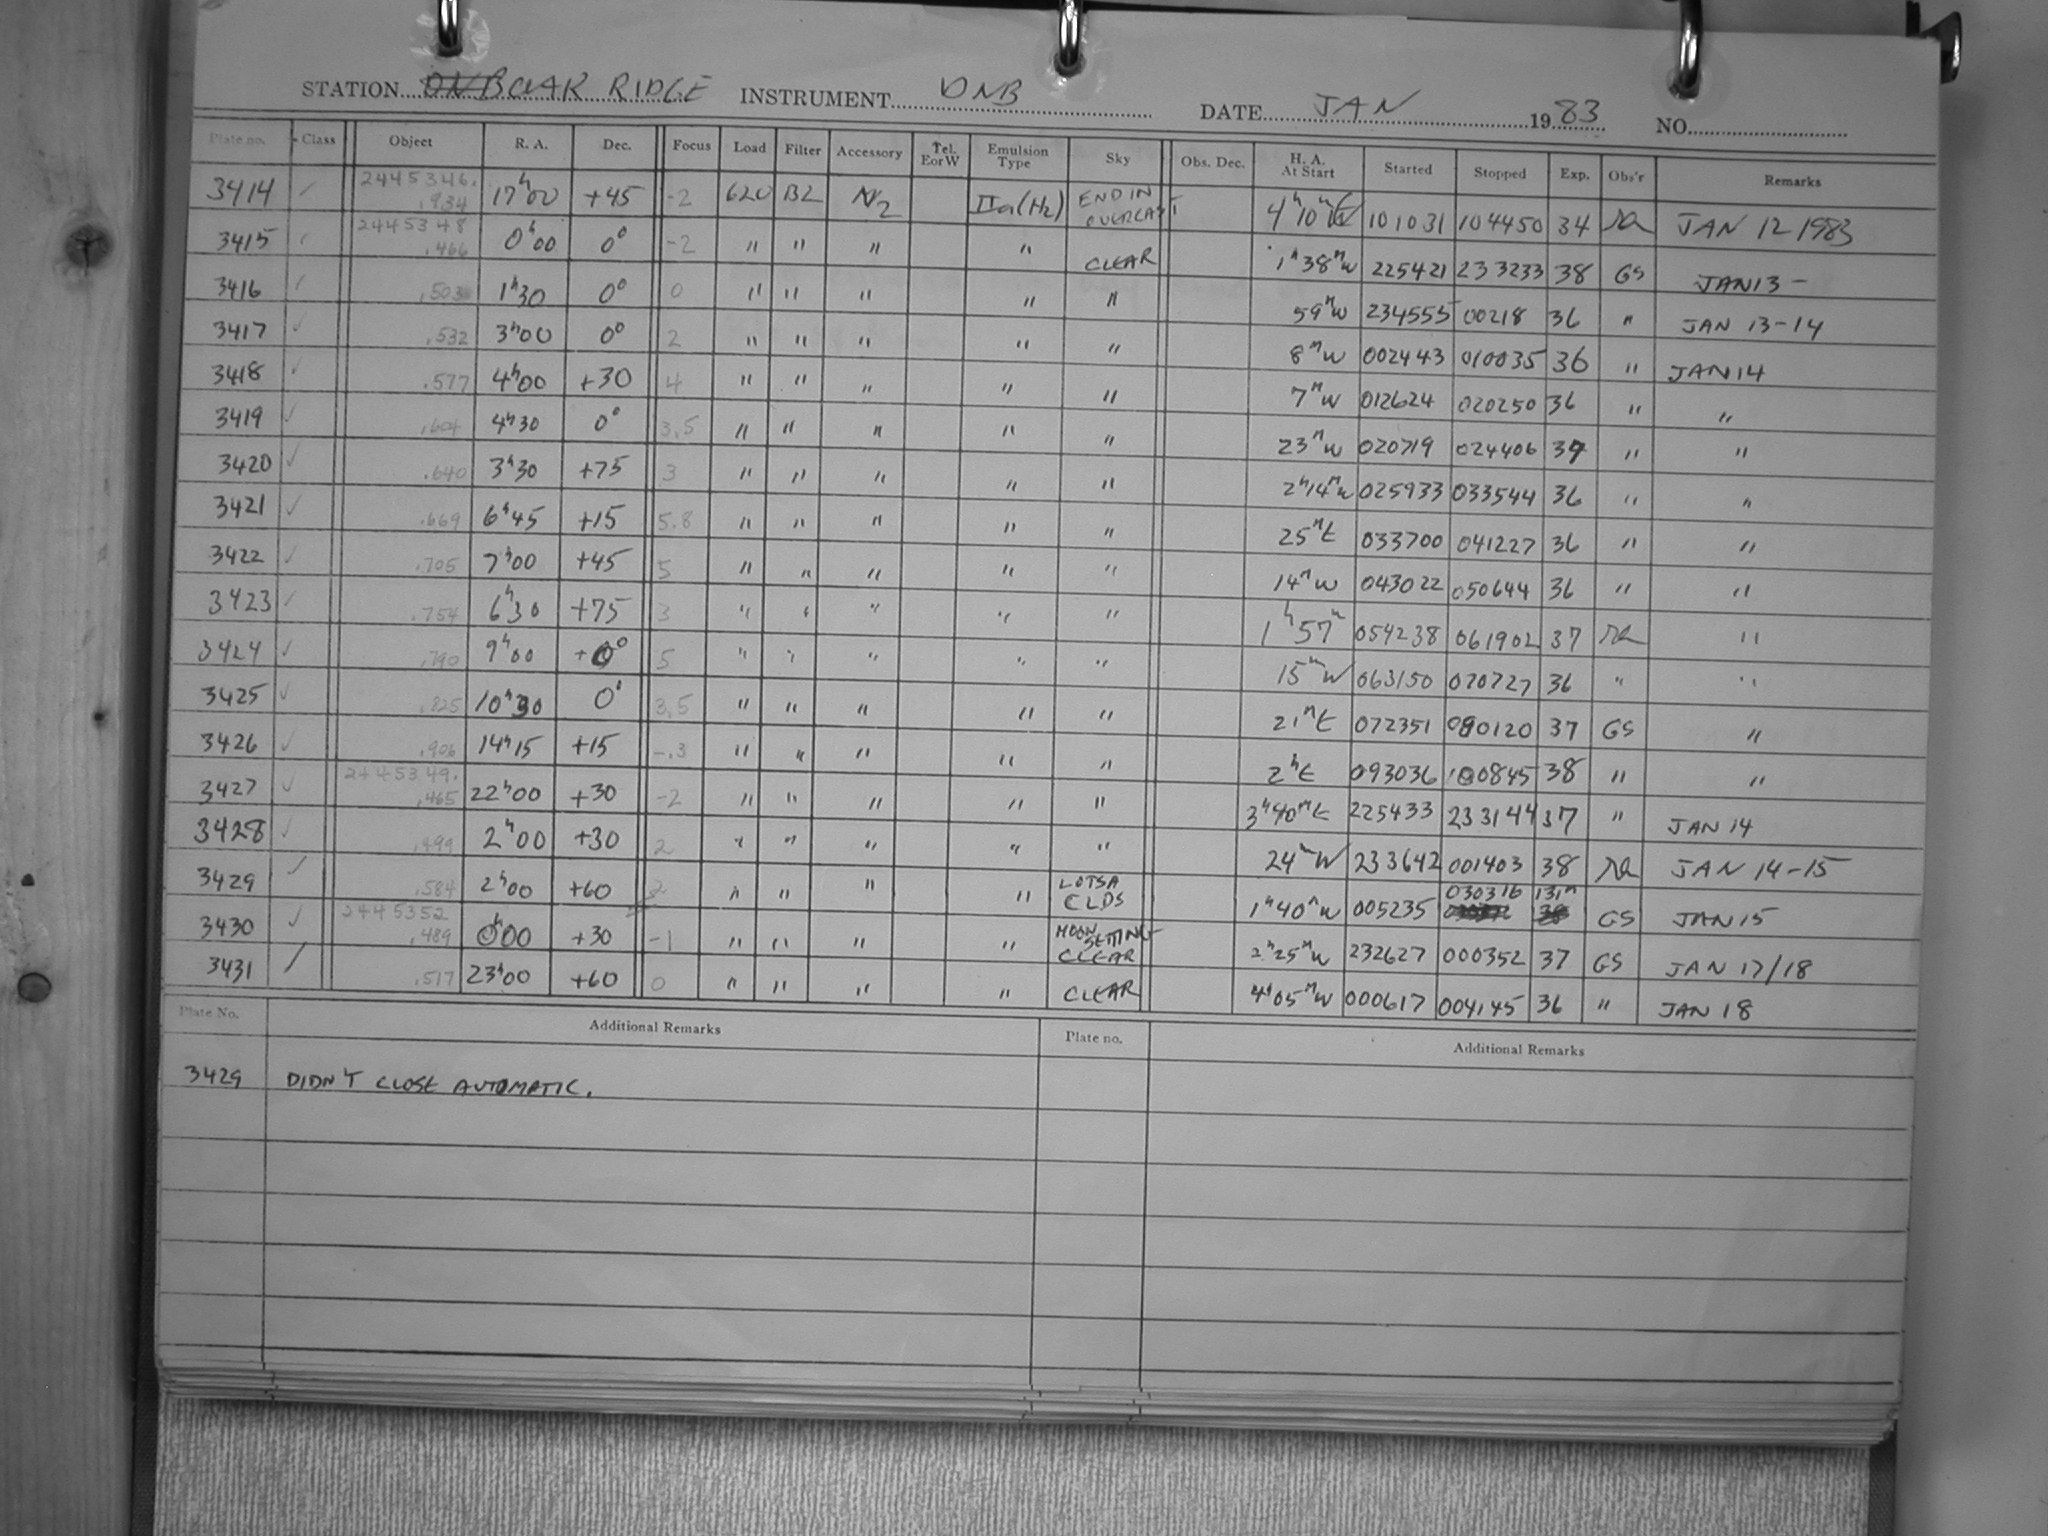 STATION OAK RIDGE INSTRUMENT DNB DATE JAN 1983 NO.
Plate no. Class Object R. A. Dec. Focus Load Filter Accessory Tel. E or W Emulsion Type Sky Obs. Dec. H. A. At Start Started Stopped Exp. Obs'r Remarks
3414 ✓ 2445346.934 17ʰ00 +45 -2 620 B2 N2 IIa(H2) END IN OVERCAST 4ʰ10ᵐE 101031 104450 34 JAN 12 1983
3415 ✓ 2445348.466 0ʰ00 0° -2 " " " " CLEAR 1ʰ38ᵐW 225421 233233 38 GS JAN 13 -
3416 ✓ .503 1ʰ30 0° 0 " " " " " 59ᵐW 234555 00218 36 " JAN 13-14
3417 ✓ .532 3ʰ00 0° 2 " " " " " 8ᵐW 002443 010035 36 " JAN 14
3418 ✓ .577 4ʰ00 +30 4 " " " " " 7ᵐW 012624 020250 36 " "
3419 ✓ .604 4ʰ30 0° 3.5 " " " " " 23ᵐW 020719 024406 37 " "
3420 ✓ .640 3ʰ30 +75 3 " " " " " 2ʰ14ᵐW 025933 033544 36 " "
3421 ✓ .669 6ʰ45 +15 5.8 " " " " " 25ᵐE 033700 041227 36 " "
3422 ✓ .705 7ʰ00 +45 5 " " " " " 14ᵐW 043022 050644 36 " "
3423 ✓ .754 6ʰ30 +75 3 " " " " " 1ʰ57ᵐ 054238 061902 37 "
3424 ✓ .790 9ʰ00 +0° 5 " " " " " 15ᵐW 063150 070727 36 " "
3425 ✓ .825 10ʰ30 0° 3.5 " " " " " 21ᵐE 072351 080120 37 GS "
3426 ✓ .906 14ʰ15 +15 -.3 " " " " " 2ʰE 093036 100845 38 " "
3427 ✓ 2445349.465 22ʰ00 +30 -2 " " " " " 3ʰ40ᵐE 225433 233144 37 " JAN 14
3428 ✓ .499 2ʰ00 +30 2 " " " " " 24ᵐW 233642 001403 38 JAN 14-15
3429 ✓ .584 2ʰ00 +60 2 " " " " LOTSA CLDS 1ʰ40ᵐW 005235 030316 131ᵐ GS JAN 15
3430 ✓ 2445352.489 0ʰ00 +30 -1 " " " " MOON SETTING CLEAR 2ʰ25ᵐW 232627 000352 37 GS JAN 17/18
3431 ✓ .517 23ʰ00 +60 0 " " " " CLEAR 4ʰ05ᵐW 000617 004145 36 " JAN 18
Plate No. Additional Remarks Plate no. Additional Remarks
3429 DIDN'T CLOSE AUTOMATIC.